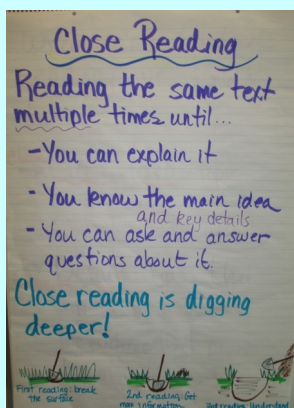 Close Reading
Reading the same text
multiple times until...
-You can explain it
- You know the main idea
and key details
- You can ask and answer
questions about it.
Close reading is digging
deeper!
First reading: break
the surface
2nd reading: Get
more information
3rd reading: Understand